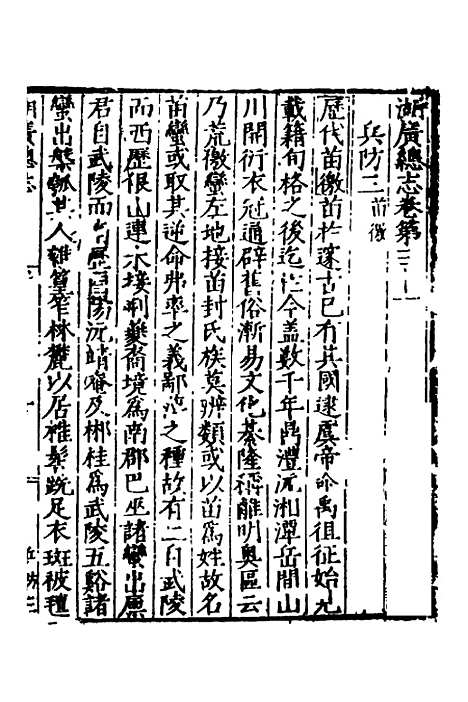 湖廣總志卷第三十一
兵防三 苗徼
歷代苗徼苗於邃古已有其國逮虞帝命禹徂征始見
載籍旬格之後迄於今蓋數千年鼎澧沅湘潭岳間山
川開衍衣冠通辟舊俗漸易文化綦隆稱離明奧區云
乃荒徼蠻左地接苗封氏族莫辨類或以苗爲姓故名
苗蠻或取其逆命弗率之義鄙之種故有二自武陵
而西歷佷山連水接荆夔裔境爲南郡巴巫諸蠻出廪
君自武陵而歷陽沅靖及郴桂爲武陵五谿諸
蠻出槃瓠其人雜篁箐林麓以居椎髻跣足衣斑被氊
湖廣總志
兵防三